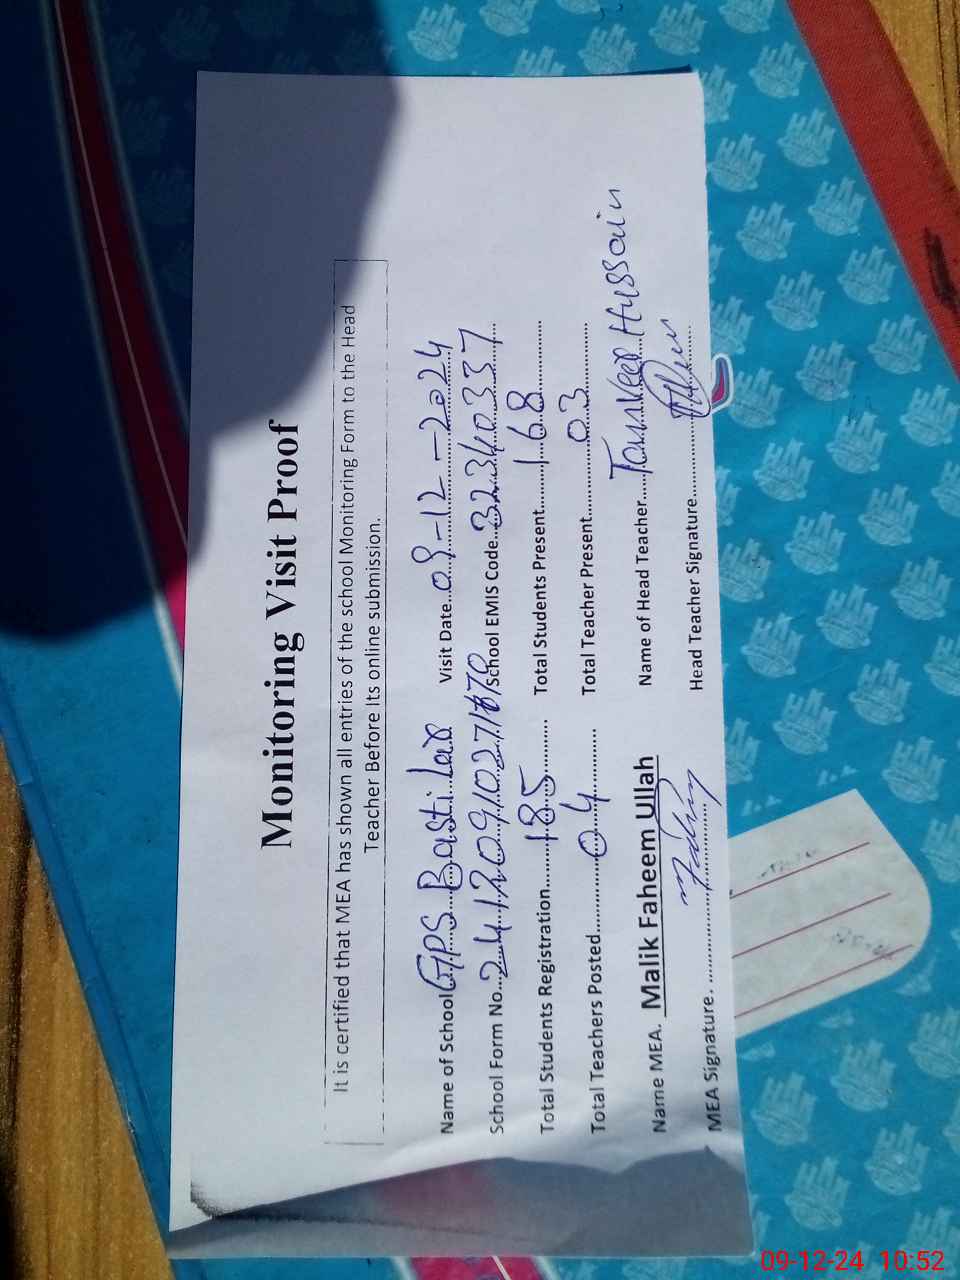 Monitoring Visit Proof
It is certified that MEA has shown all entries of the school Monitoring Form to the Head
Teacher Before Its online submission.
Name of School GPS Basti Lar Visit Date...09-12-2024
School Form No...2412091027 School EMIS Code...32340337
Total Students Registration...185 Total Students Present...168
Total Teachers Posted...04 Total Teacher Present...03
Name MEA. Malik Faheem Ullah Name of Head Teacher...Tanveer Hussain
MEA Signature. ... Head Teacher Signature...
09-12-24 10:52